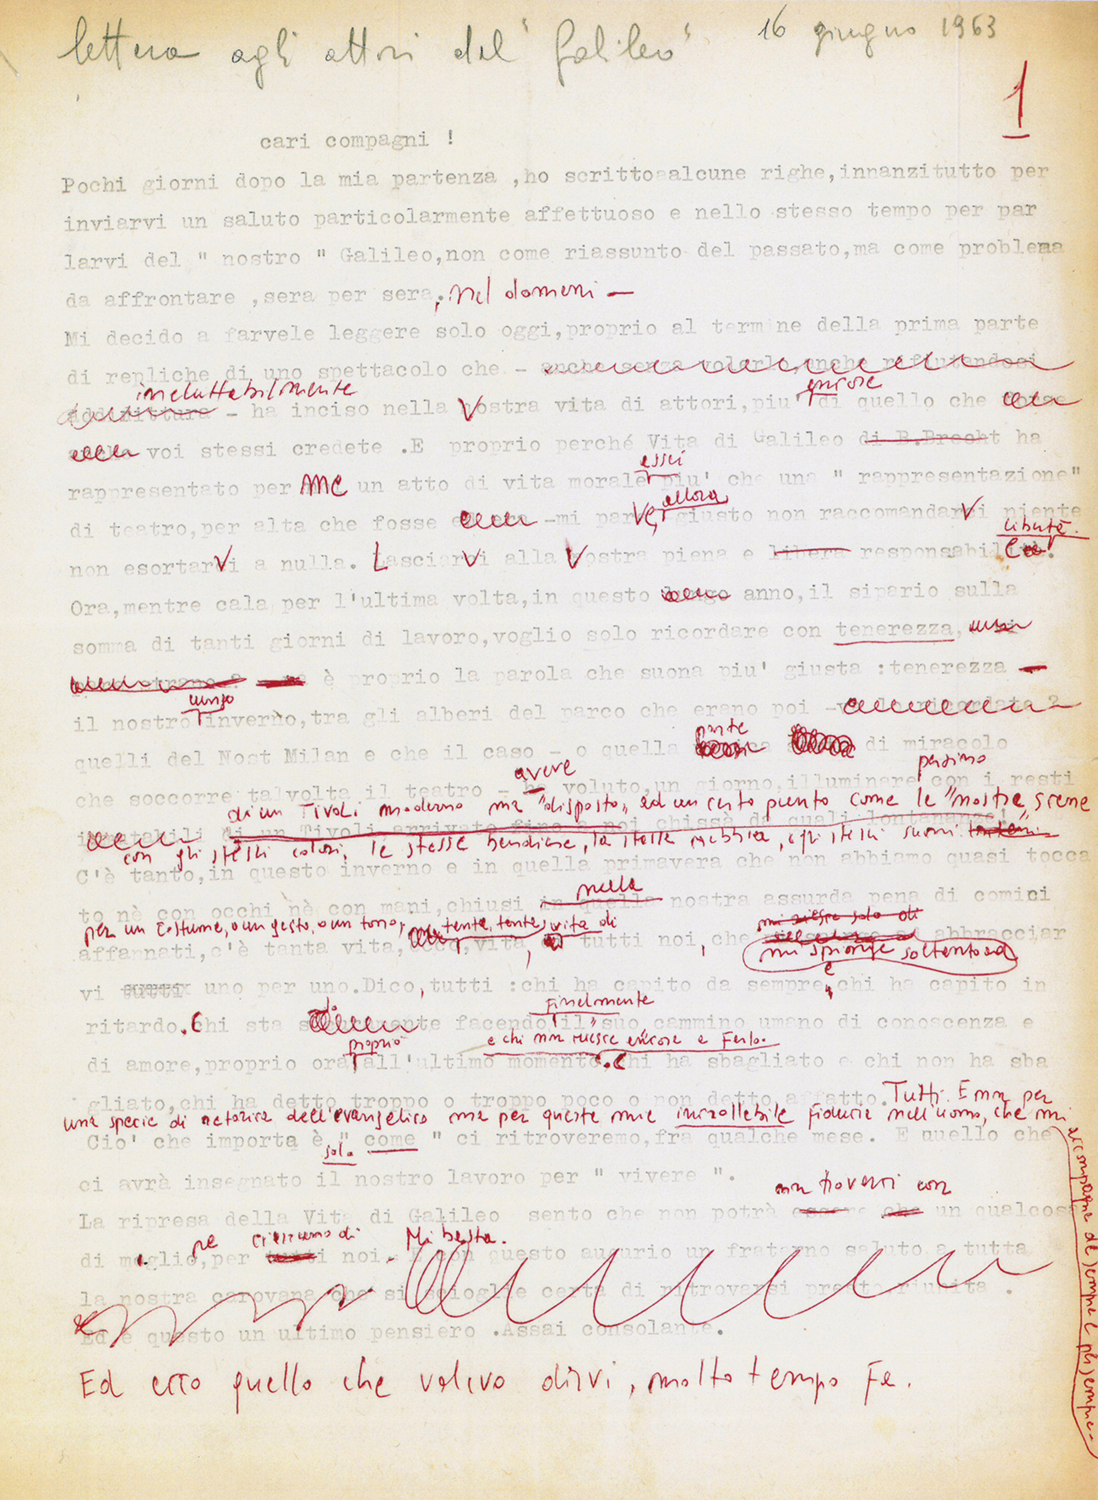 lettera agli attori del "Galileo"
16 giugno 1963
1
cari compagni !
Pochi giorni dopo la mia partenza ,ho scritto alcune righe,innanzitutto per
inviarvi un saluto particolarmente affettuoso e nello stesso tempo per par
larvi del " nostro " Galileo,non come riassunto del passato,ma come problema
da affrontare ,sera per sera, nel domani —
Mi decido a farvele leggere solo oggi,proprio al termine della prima parte
di repliche di uno spettacolo che - anche senza volerlo,anche rifiutandosi
ineluttabilmente ancora
addirittura - ha inciso nella Vostra vita di attori,piu' di quello che
voi stessi credete .E proprio perché Vita di Galileo di B.Brecht ha
essi
rappresentato per me un atto di vita morale piu' che una " rappresentazione"
allora
di teatro,per alta che fosse -mi parve, giusto non raccomandarVi niente
libertà.
non esortarVi a nulla. LasciarVi alla Vostra piena e libera responsabilità.
Ora,mentre cala per l'ultima volta,in questo anno,il sipario sulla
somma di tanti giorni di lavoro,voglio solo ricordare con tenerezza,
è proprio la parola che suona piu' giusta :tenerezza —
lungo
il nostro inverno,tra gli alberi del parco che erano poi -
parte
quelli del Nost Milan e che il caso - o quella di miracolo
avere persino
che soccorre talvolta il teatro - ha voluto,un giorno,illuminare con i resti
di un Tivoli moderno ma "disposto" ad un certo punto come le "nostre" scene
di un Tivoli arrivato fino a noi chissà da quali lontananze
con gli stessi colori, le stesse bandiere, la stessa nebbia, gli stessi suoni
C'è tanto,in questo inverno e in quella primavera che non abbiamo quasi tocca
nella
to nè con occhi nè con mani,chiusi in quella nostra assurda pena di comici
per un costume, o un gesto, o un tono, tanta, tanta, vita di mi riesce solo di
affannati,c'è tanta vita, vita di tutti noi, che abbracciar
mi spinge soltanto ad
vi tutti uno per uno.Dico,tutti :chi ha capito da sempre e chi ha capito in
finalmente
ritardo. Chi sta facendo il "suo cammino umano di conoscenza e
proprio e chi non riesce ancora a farlo.
di amore,proprio ora, all'ultimo momento. Chi ha sbagliato e chi non ha sba
gliato,chi ha detto troppo o troppo poco o non detto affatto. Tutti. E non per
una specie di retorica dell'evangelico ma per questa mia incrollabile fiducia nell'uomo, che mi
accompagna da sempre e più sempre —
Cio' che importa è " come " ci ritroveremo,fra qualche mese. E quello che
solo
ci avrà insegnato il nostro lavoro per " vivere ".
ma trovarvi con
La ripresa della Vita di Galileo sento che non potrà essere che un qualcosa
ciascuno di Mi basta.
di meglio,per tutti noi. E con questo augurio un fraterno saluto a tutta
la nostra carovana che si scioglie certa di ritrovarsi presto riunita .
Ed è questo un ultimo pensiero .Assai consolante.
Ed ecco quello che volevo dirvi, molto tempo fa.